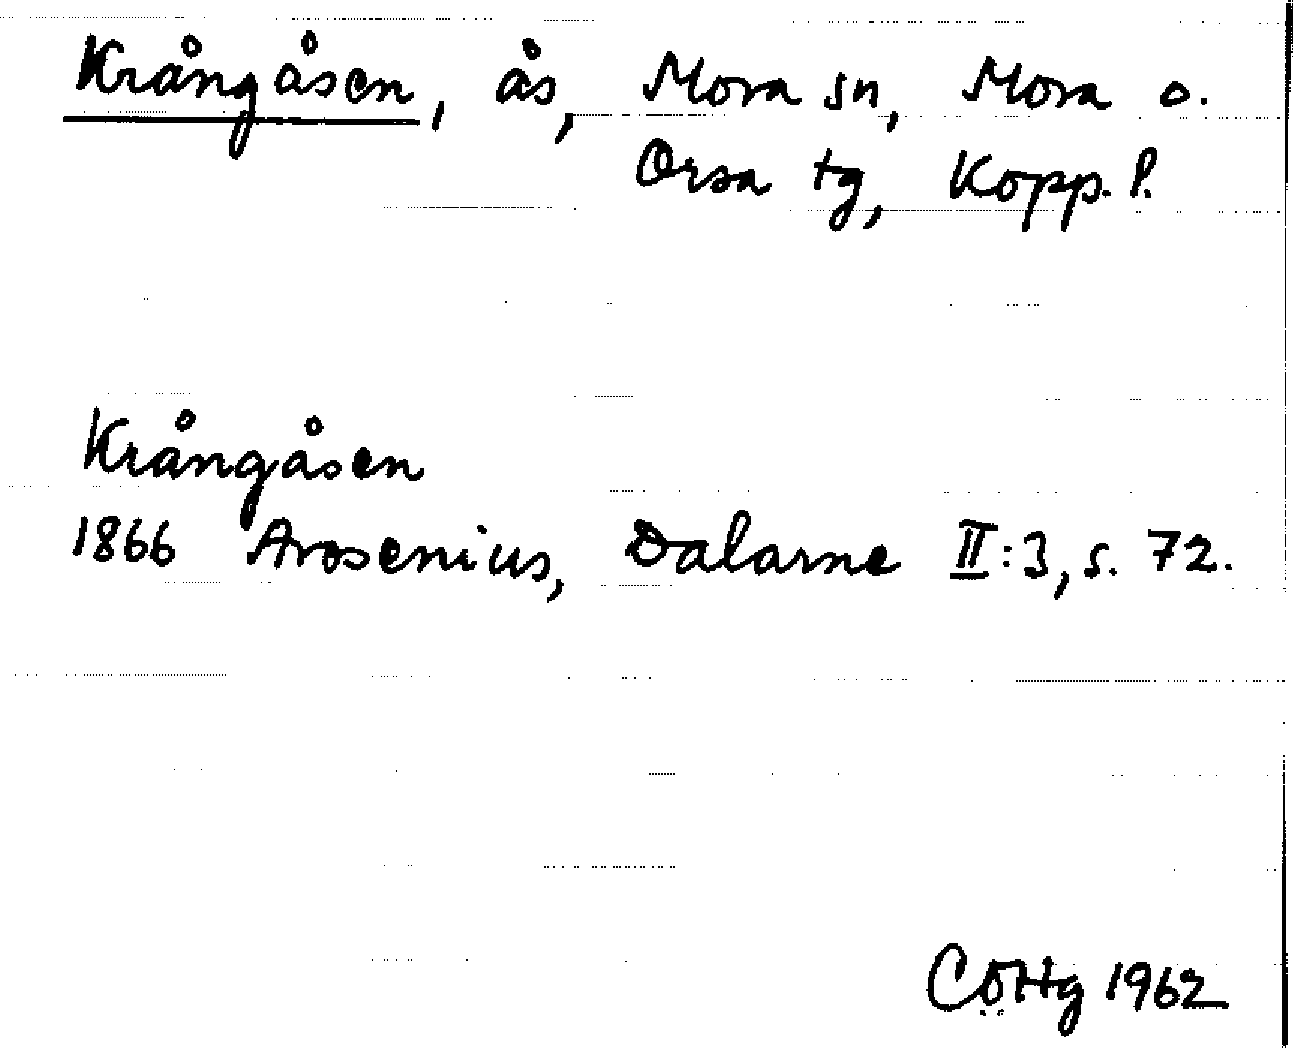 Krångåsen, ås, Mora sn, Mora o.
Orsa tg, Kopp. l.
Krångåsen
1866 Arosenius, Dalarne II:3, s. 72.
CÖHg 1962